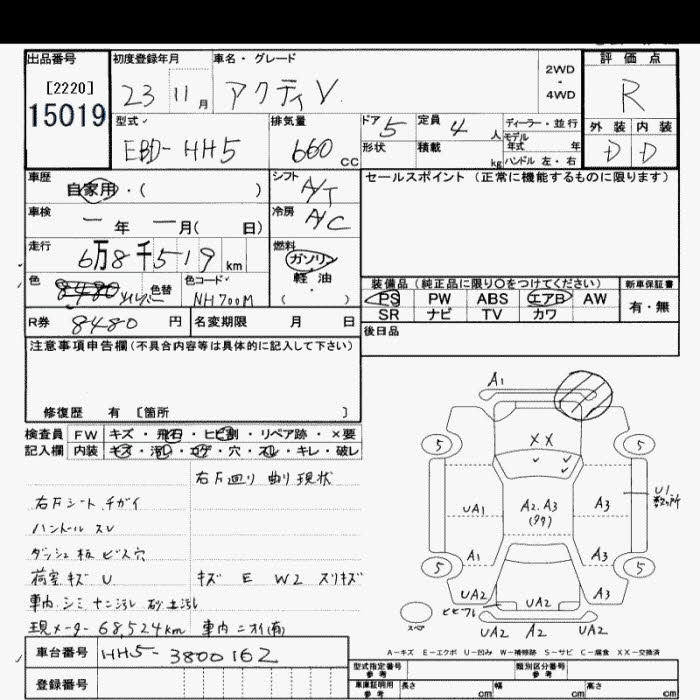 出品番号 初度登録年月 車名・グレード 評価点
[2220]
15019
23 11月 アクティV 2WD - 4WD R
型式 排気量 ドア 5 定員 4人 ディーラー・並行 外装 内装
EBD-HH5 660cc 形状 積載 kg モデル年式 年 D D
ハンドル 左・右
車歴 自家用・( ) シフト A/T セールスポイント(正常に機能するものに限ります)
車検 一年 一月( 日) 冷房 A/C
走行 6万8千519km 燃料 ガソリン・軽油・( )
色 8480 シルバー 色替 色コード NH700M
装備品(純正品に限り○をつけてください) 新車保証書
PS PW ABS エアB AW 有・無
SR ナビ TV カワ
R券 8480円 名変期限 月 日 後日品
注意事項申告欄(不具合内容等は具体的に記入して下さい)
修復歴 有 [箇所 ]
検査員 FW キズ・飛石・ヒビ割・リペア跡・×要
記入欄 内装 キズ・汚レ・コゲ・穴・スレ・キレ・破レ
右下廻り 曲り 現状
右下シート チガイ
ハンドル スレ
ダッシュ板 ビス穴
荷室 キズ U キズ E W2 スリキズ
車内 シミ ナニ汚レ 砂土汚レ
現メーター 68,524km 車内ニオイ(有)
A1
XX
5 5
UA1 A2.A3 A3 U1
A1 A3
5 5
UA2 UA2 A3
スペア
UA2 A2 UA2
A-キズ E-エクボ U-凹み W-補修跡 S-サビ C-腐食 XX-交換済
車台番号 HH5-3800162
登録番号
型式指定番号 参考 類別区分番号 参考
車庫証明用 参考 長さ cm 幅 cm 高さ cm